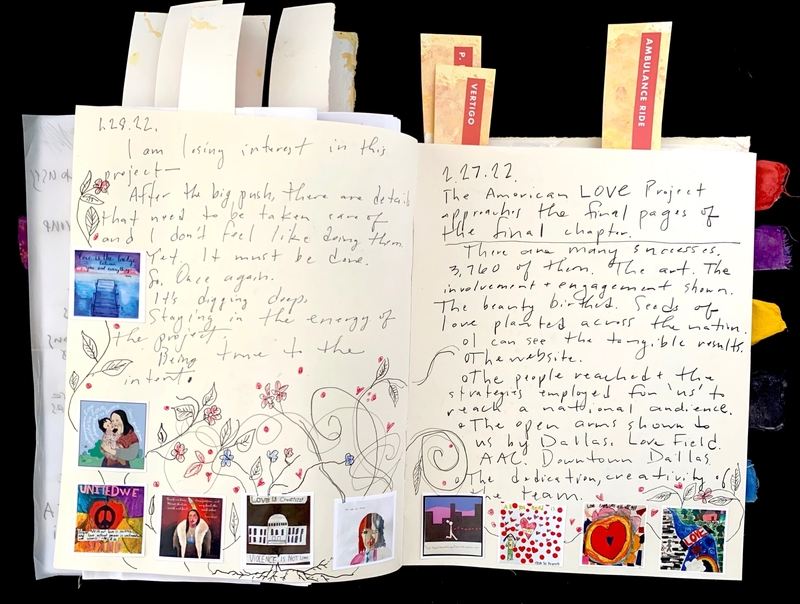 P.
VERTIGO
AMBULANCE RIDE
1.28.22.
I am losing interest in this
project—
After the big push, there are details
that need to be taken care of
and I don't feel like doing them.
Yet. It must be done.
So. Once again.
It's digging deep.
Staying in the energy of
the project
Being true to the
intent.
UNITED WE
Love is Greatest
VIOLENCE IS NOT LOVE
1.27.22.
The American LOVE Project
approaches the final pages of
the final chapter.
There are many successes.
3,760 of them. The art. The
involvement + engagement shown.
The beauty birthed. Seeds of
love planted across the nation.
o I can see the tangible results.
o The website.
o The people reached + the
strategies employed for 'us' to
reach a national audience.
o The open arms shown to
us by Dallas. Love Field.
AAC. Downtown Dallas
o The dedication, creativity of
the team.
LOVE